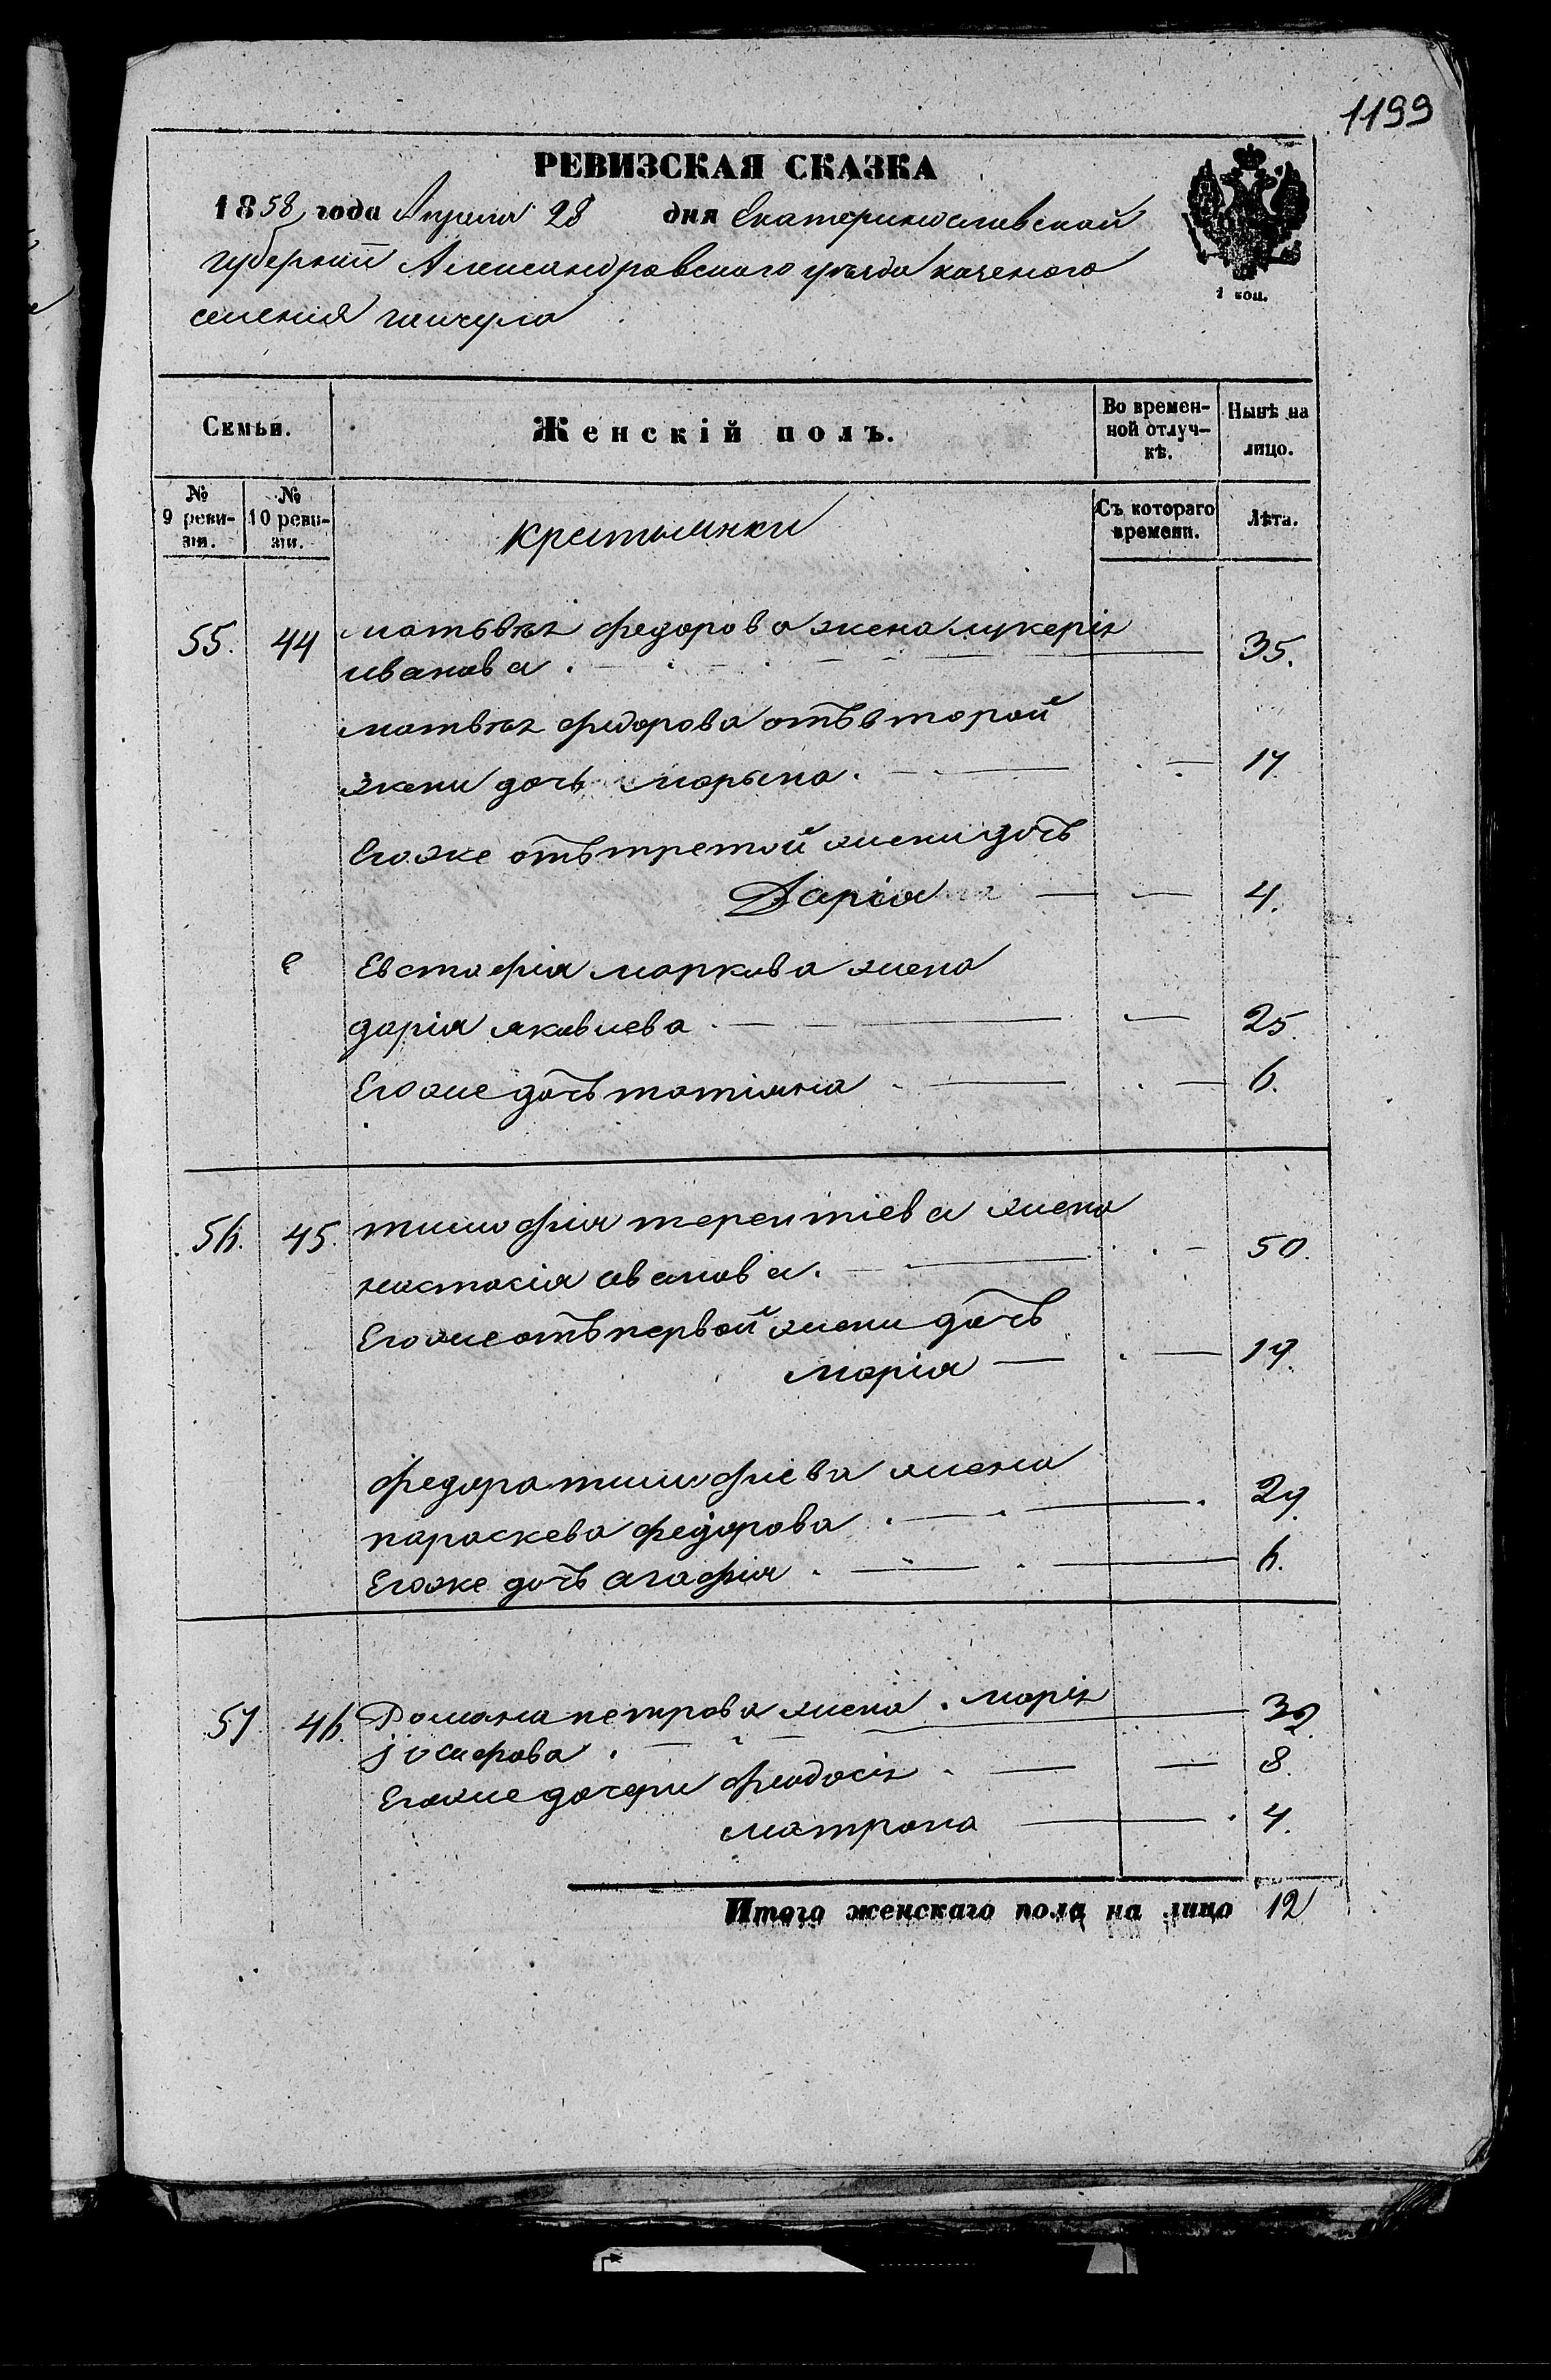 1199
РЕВИЗСКАЯ СКАЗКА
1858 года Апреля 28 дня Екатеринославской
губернии Александровского уезда казеного
селения гайчула
1 коп.
Семьи.
Женскій полъ.
Во времен-
ной отлуч-
кѣ.
Нынѣ на
лицо.
№
9 реви-
зіи.
№
10 реви-
зіи.
крестьянки
Съ котораго
времени.
Лѣта.
55. 44 матьвѣя федорова жена лукерія
иванова. 35.
матвѣя федорова отъ второй
жени дочь марьяна. 17
Егоже отъ третой жени дочь
Дарія 4.
Евстафія маркова жена
дарія яковлева 25.
Егоже дочь татіяна 6.
56. 45. тимофія терентіева жена
настасія иванова. 50.
Егоже отъ первой жени дочь
марія 19.
федора тимофіева жена
параскева федорова 29.
Егоже дочь агафія 6.
57 46. Романа петрова жена марія
іосифова 32
Егоже дочери феодосія 8.
матрона 4.
Итого женскаго пола на лицо 12